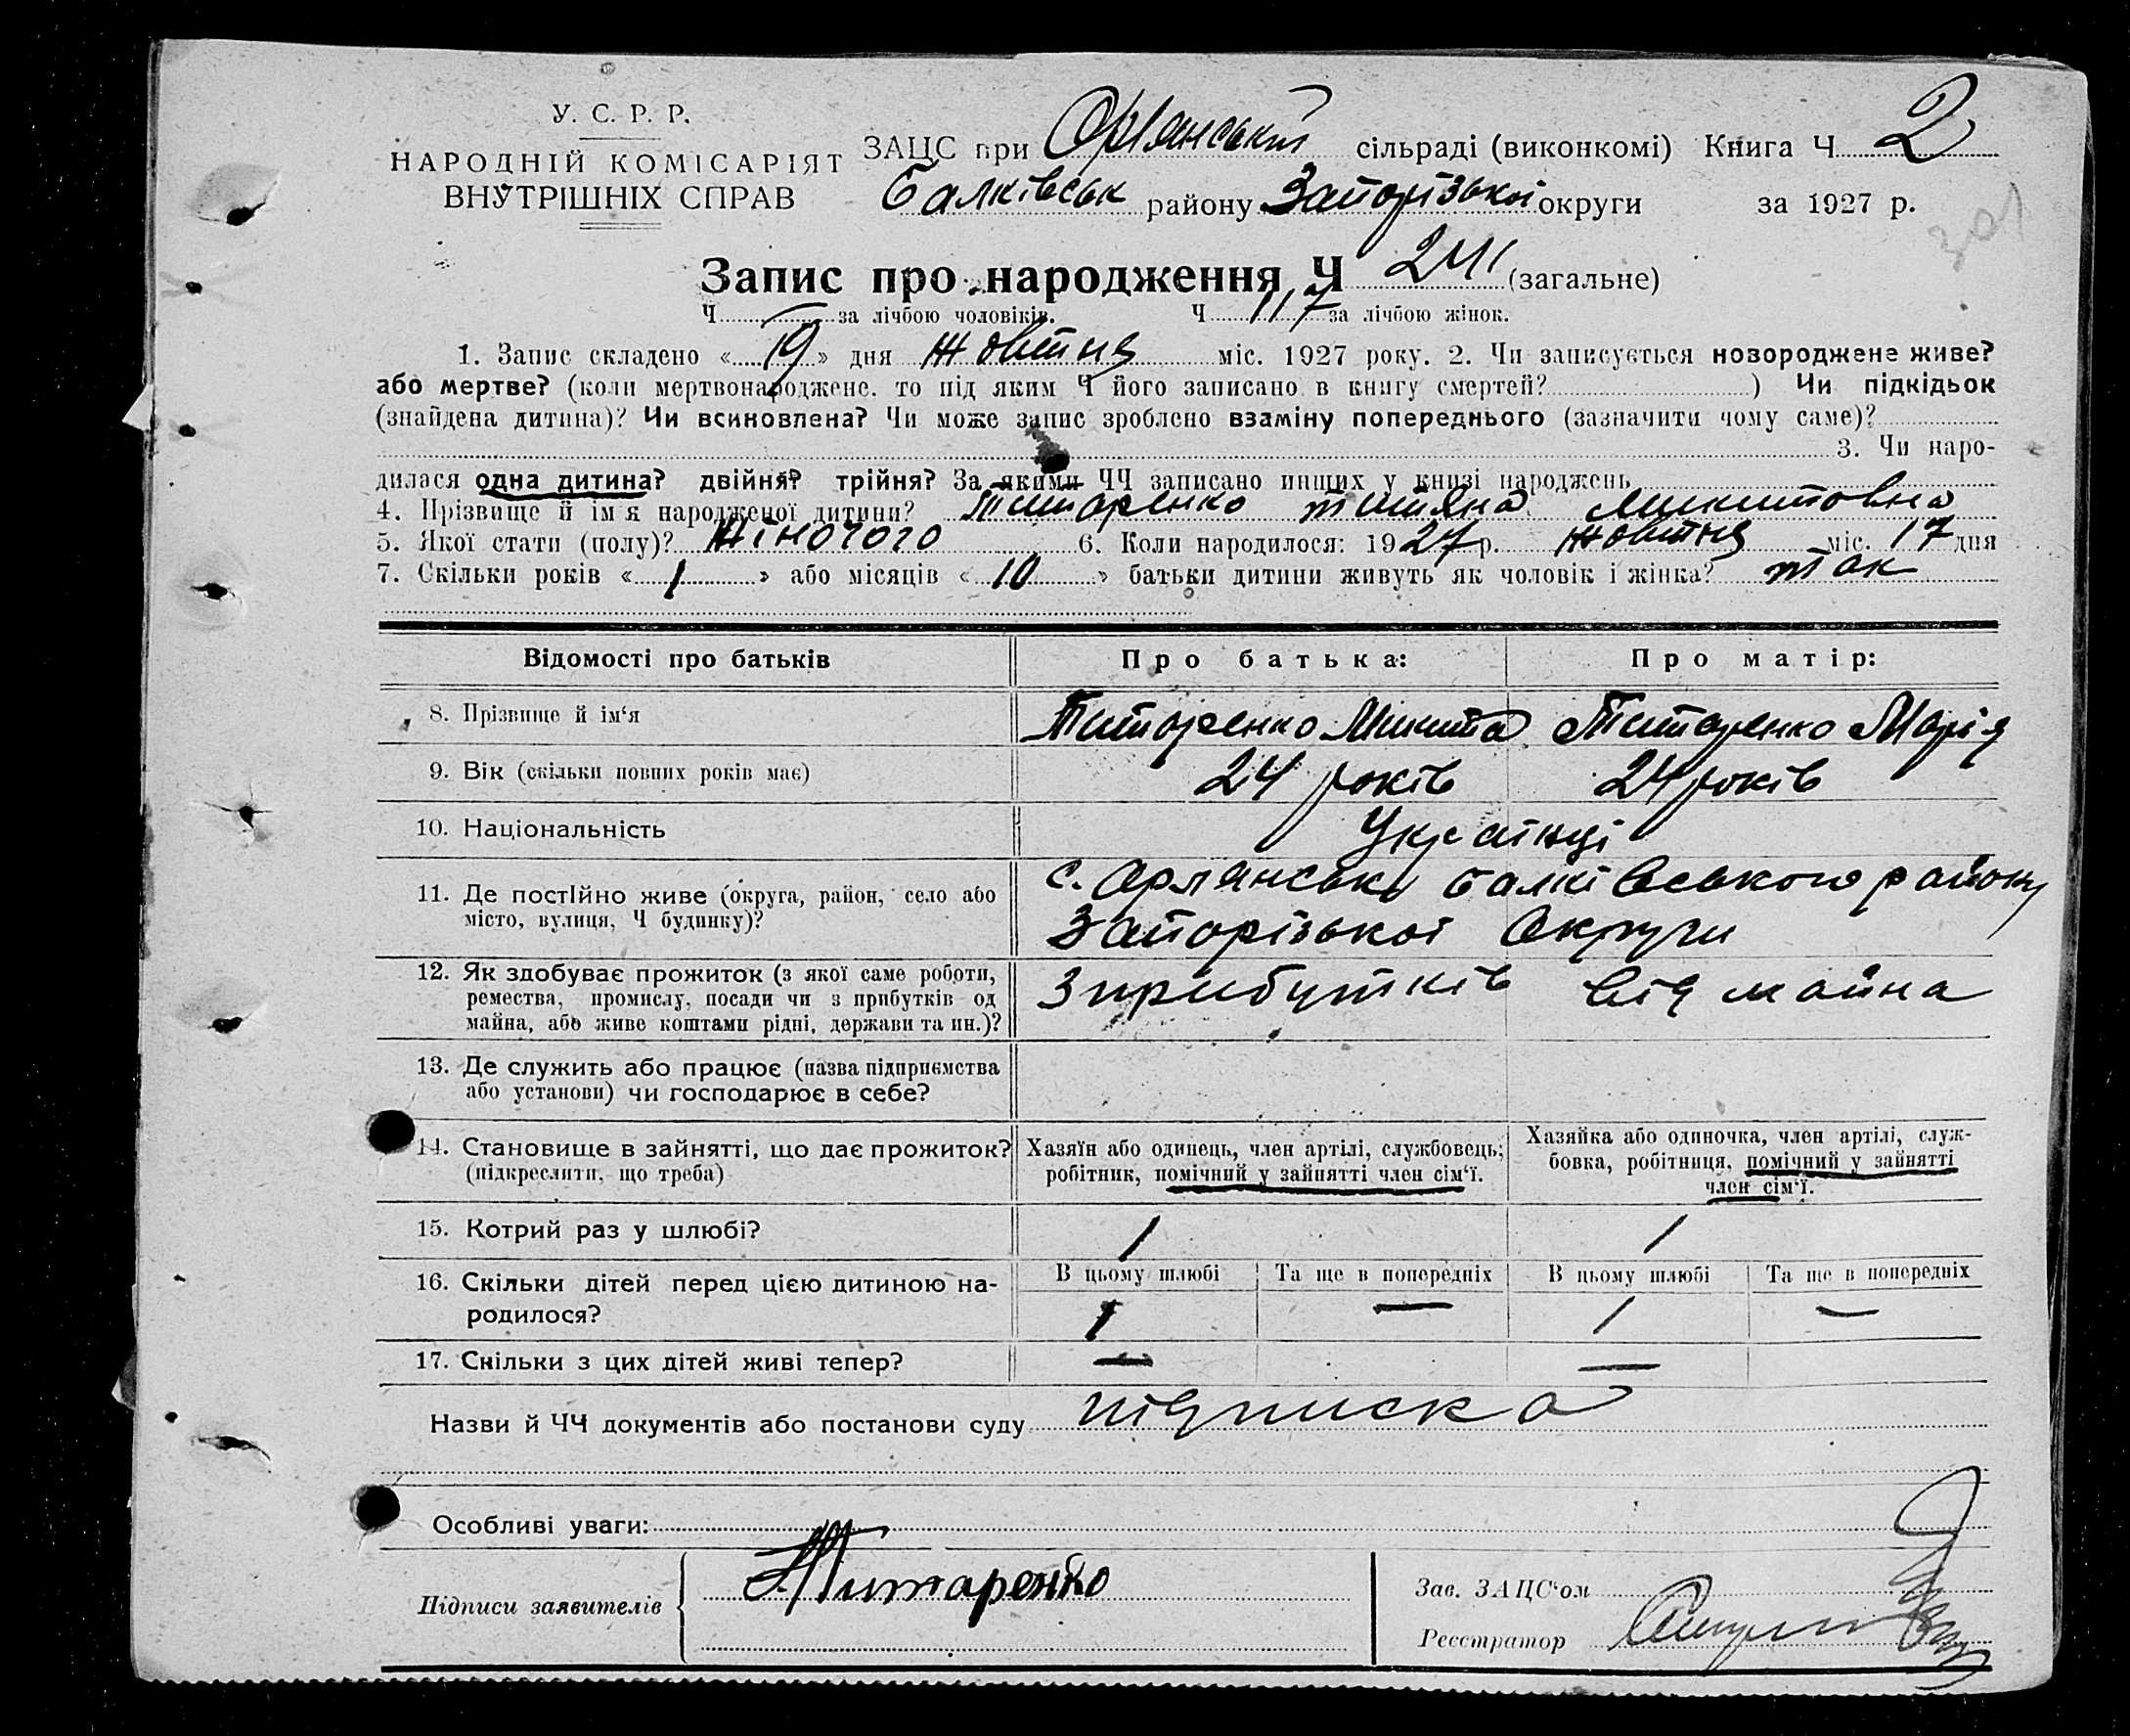 У. С. Р. Р.
НАРОДНІЙ КОМІСАРІЯТ
ВНУТРІШНІХ СПРАВ
ЗАЦС при Орлянській сільраді (виконкомі) Книга Ч 2
Балківськ району Запорізької округи за 1927 р.
301
Запис про народження Ч 241 (загальне)
Ч за лічбою чоловіків. Ч 117 за лічбою жінок.
1. Запис складено « 19 » дня Жовтня міс. 1927 року. 2. Чи записується новороджене живе?
або мертве? (коли мертвонароджене. то під яким Ч його записано в книгу смертей? ) Чи підкідьок
(знайдена дитина)? Чи всиновлена? Чи може запис зроблено взаміну попереднього (зазначити чому саме)?
3. Чи наро-
дилася одна дитина? двійня? трійня? За якими ЧЧ записано инших у книзі народжень
4. Прізвище й ім'я народженої дитини? Титаренко Тетяна Микитовна
5. Якої стати (полу)? Жіночого 6. Коли народилося: 1927 р. Жовтня міс. 17 дня
7. Скільки років « 1 » або місяців « 10 » батьки дитини живуть як чоловік і жінка? так
Відомості про батьків Про батька: Про матір:
8. Прізвище й ім'я Титаренко Микита Титаренко Марія
9. Вік (скільки повних років має) 24 років 24 років
10. Національність Українці
11. Де постійно живе (округа, район, село або
місто, вулиця, Ч будинку)?
с. Орлянськ Балківського району
Запорізької Округи
12. Як здобуває прожиток (з якої саме роботи,
ремества, промислу, посади чи з прибутків од
майна, або живе коштами рідні, держави та ин.)?
З прибутків від майна
13. Де служить або працює (назва підприємства
або установи) чи господарює в себе?
14. Становище в зайнятті, що дає прожиток?
(підкреслити, що треба)
Хазяїн або одинець, член артілі, службовець;
робітник, помічний у зайнятті член сім'ї.
Хазяйка або одиночка, член артілі, служ-
бовка, робітниця, помічний у зайнятті
член сім'ї.
15. Котрий раз у шлюбі? 1 1
16. Скільки дітей перед цією дитиною на-
родилося?
В цьому шлюбі Та ще в попередніх В цьому шлюбі Та ще в попередніх
1 — 1 —
17. Скільки з цих дітей живі тепер? — —
Назви й ЧЧ документів або постанови суду підписка
Особливі уваги:
Підписи заявителів Титаренко
Зав. ЗАЦС'ом
Реєстратор